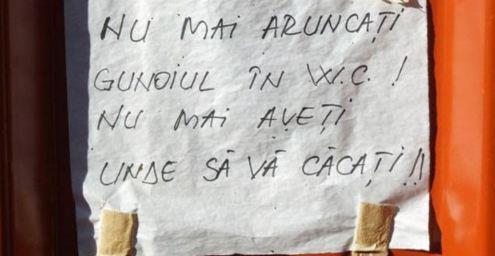 NU MAI ARUNCAȚI
GUNOIUL ÎN W.C. !
NU MAI AVEȚI
UNDE SĂ VĂ CĂCAȚI!!